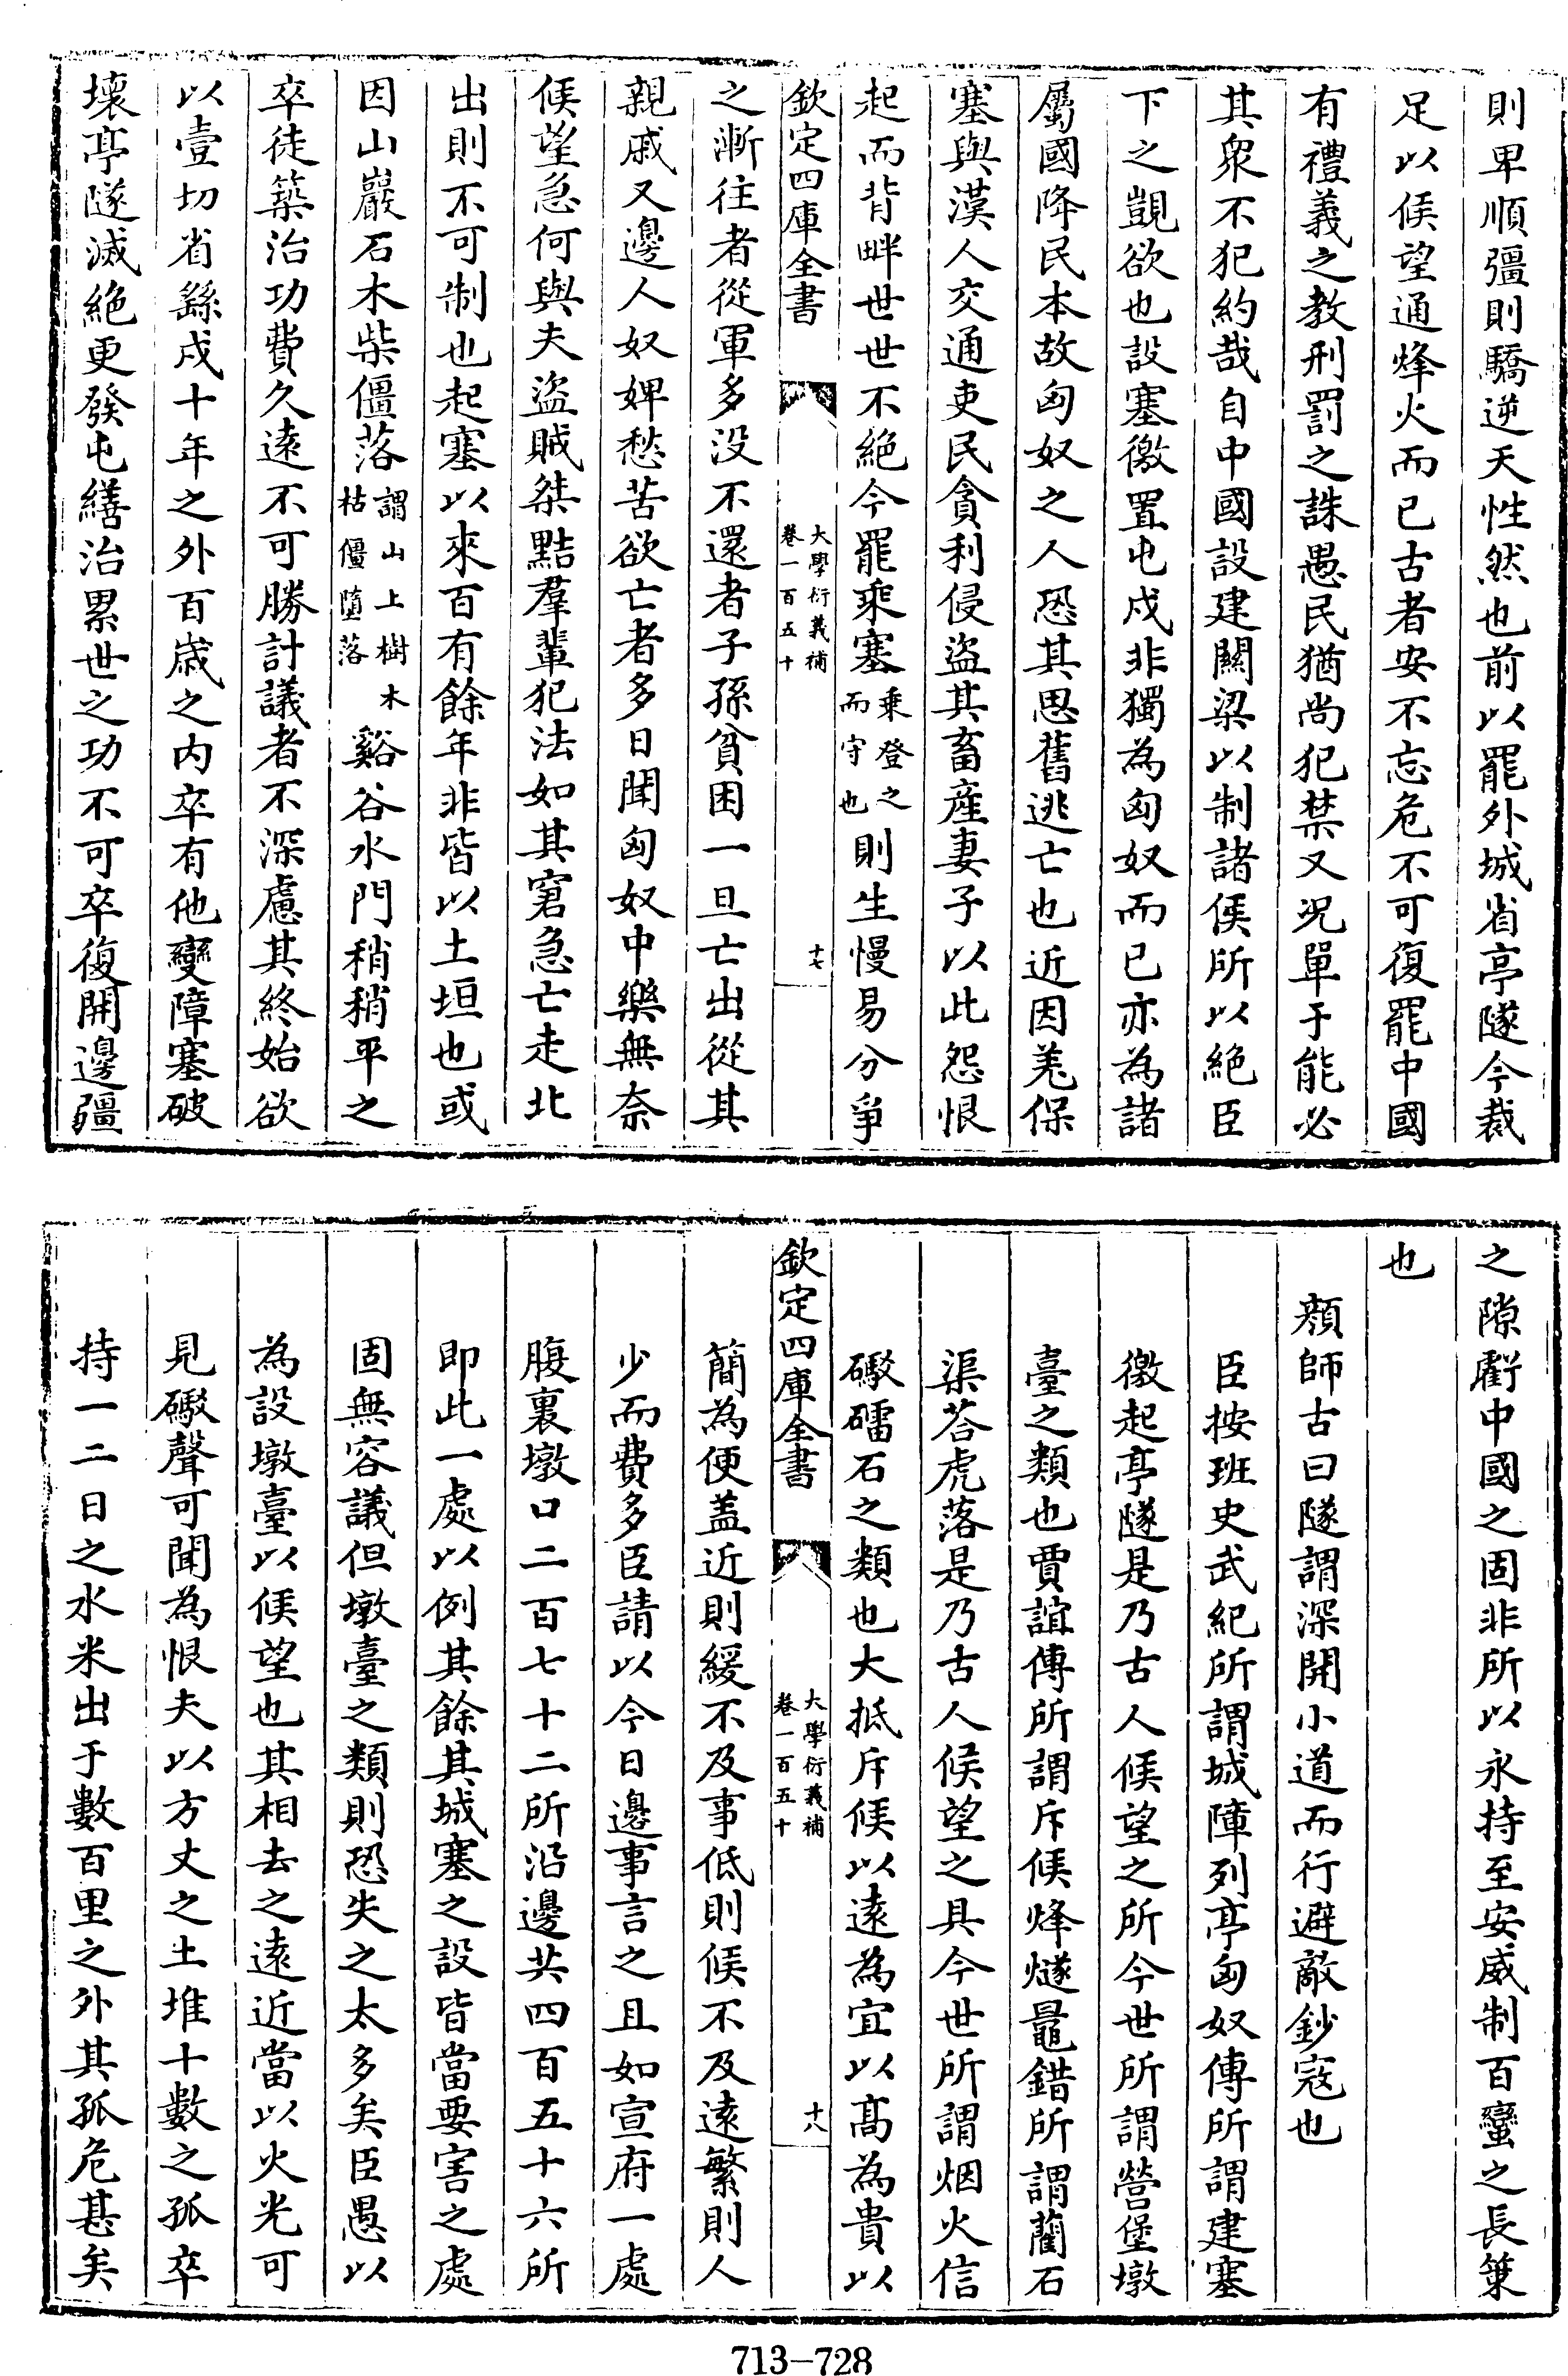 則卑順彊則驕逆天性然也前以罷外城省亭隧今裁
足以候望通烽火而已古者安不忘危不可復罷中國
有禮義之教刑罰之誅愚民猶尚犯禁又况單于能必
其衆不犯約哉自中國設建關梁以制諸侯所以絶臣
下之覬欲也設塞徼置屯戍非獨為匈奴而已亦為諸
屬國降民本故匈奴之人恐其思舊逃亡也近因羌保
塞與漢人交通吏民貪利侵盜其畜産妻子以此怨恨
起而背畔世世不絶今罷乘塞乗登之而守也則生慢易分爭
欽定四庫全書
大學衍義補
卷一百五十
十七
之漸往者從軍多没不還者子孫貧困一旦亡出從其
親戚又邊人奴婢愁苦欲亡者多日聞匈奴中樂無奈
候望急何與夫盜賊桀黠羣輩犯法如其窘急亡走北
出則不可制也起塞以來百有餘年非皆以土垣也或
因山巖石木柴僵落謂山上樹木枯僵墮落谿谷水門稍稍平之
卒徒築治功費久遠不可勝計議者不深慮其終始欲
以壹切省繇戍十年之外百歲之内卒有他變障塞破
壞亭隧滅絶更發屯繕治累世之功不可卒復開邊疆
之隙虧中國之固非所以永持至安威制百蠻之長策
也
顔師古曰隧謂深開小道而行避敵鈔寇也
臣按班史武紀所謂城障列亭匈奴傳所謂建塞
徼起亭隧是乃古人候望之所今世所謂營堡墩
臺之類也賈誼傳所謂斥候烽燧鼂錯所謂藺石
渠荅虎落是乃古人候望之具今世所謂烟火信
礮礌石之類也大抵斥候以遠為宜以髙為貴以
欽定四庫全書
大學衍義補
卷一百五十
十八
簡為便盖近則緩不及事低則候不及遠繁則人
少而費多臣請以今日邊事言之且如宣府一處
腹裏墩口二百七十二所沿邊共四百五十六所
即此一處以例其餘其城塞之設皆當要害之處
固無容議但墩臺之類則恐失之太多矣臣愚以
為設墩臺以候望也其相去之遠近當以火光可
見礮聲可聞為恨夫以方丈之土堆十數之孤卒
持一二日之水米出于數百里之外其孤危甚矣
713—728